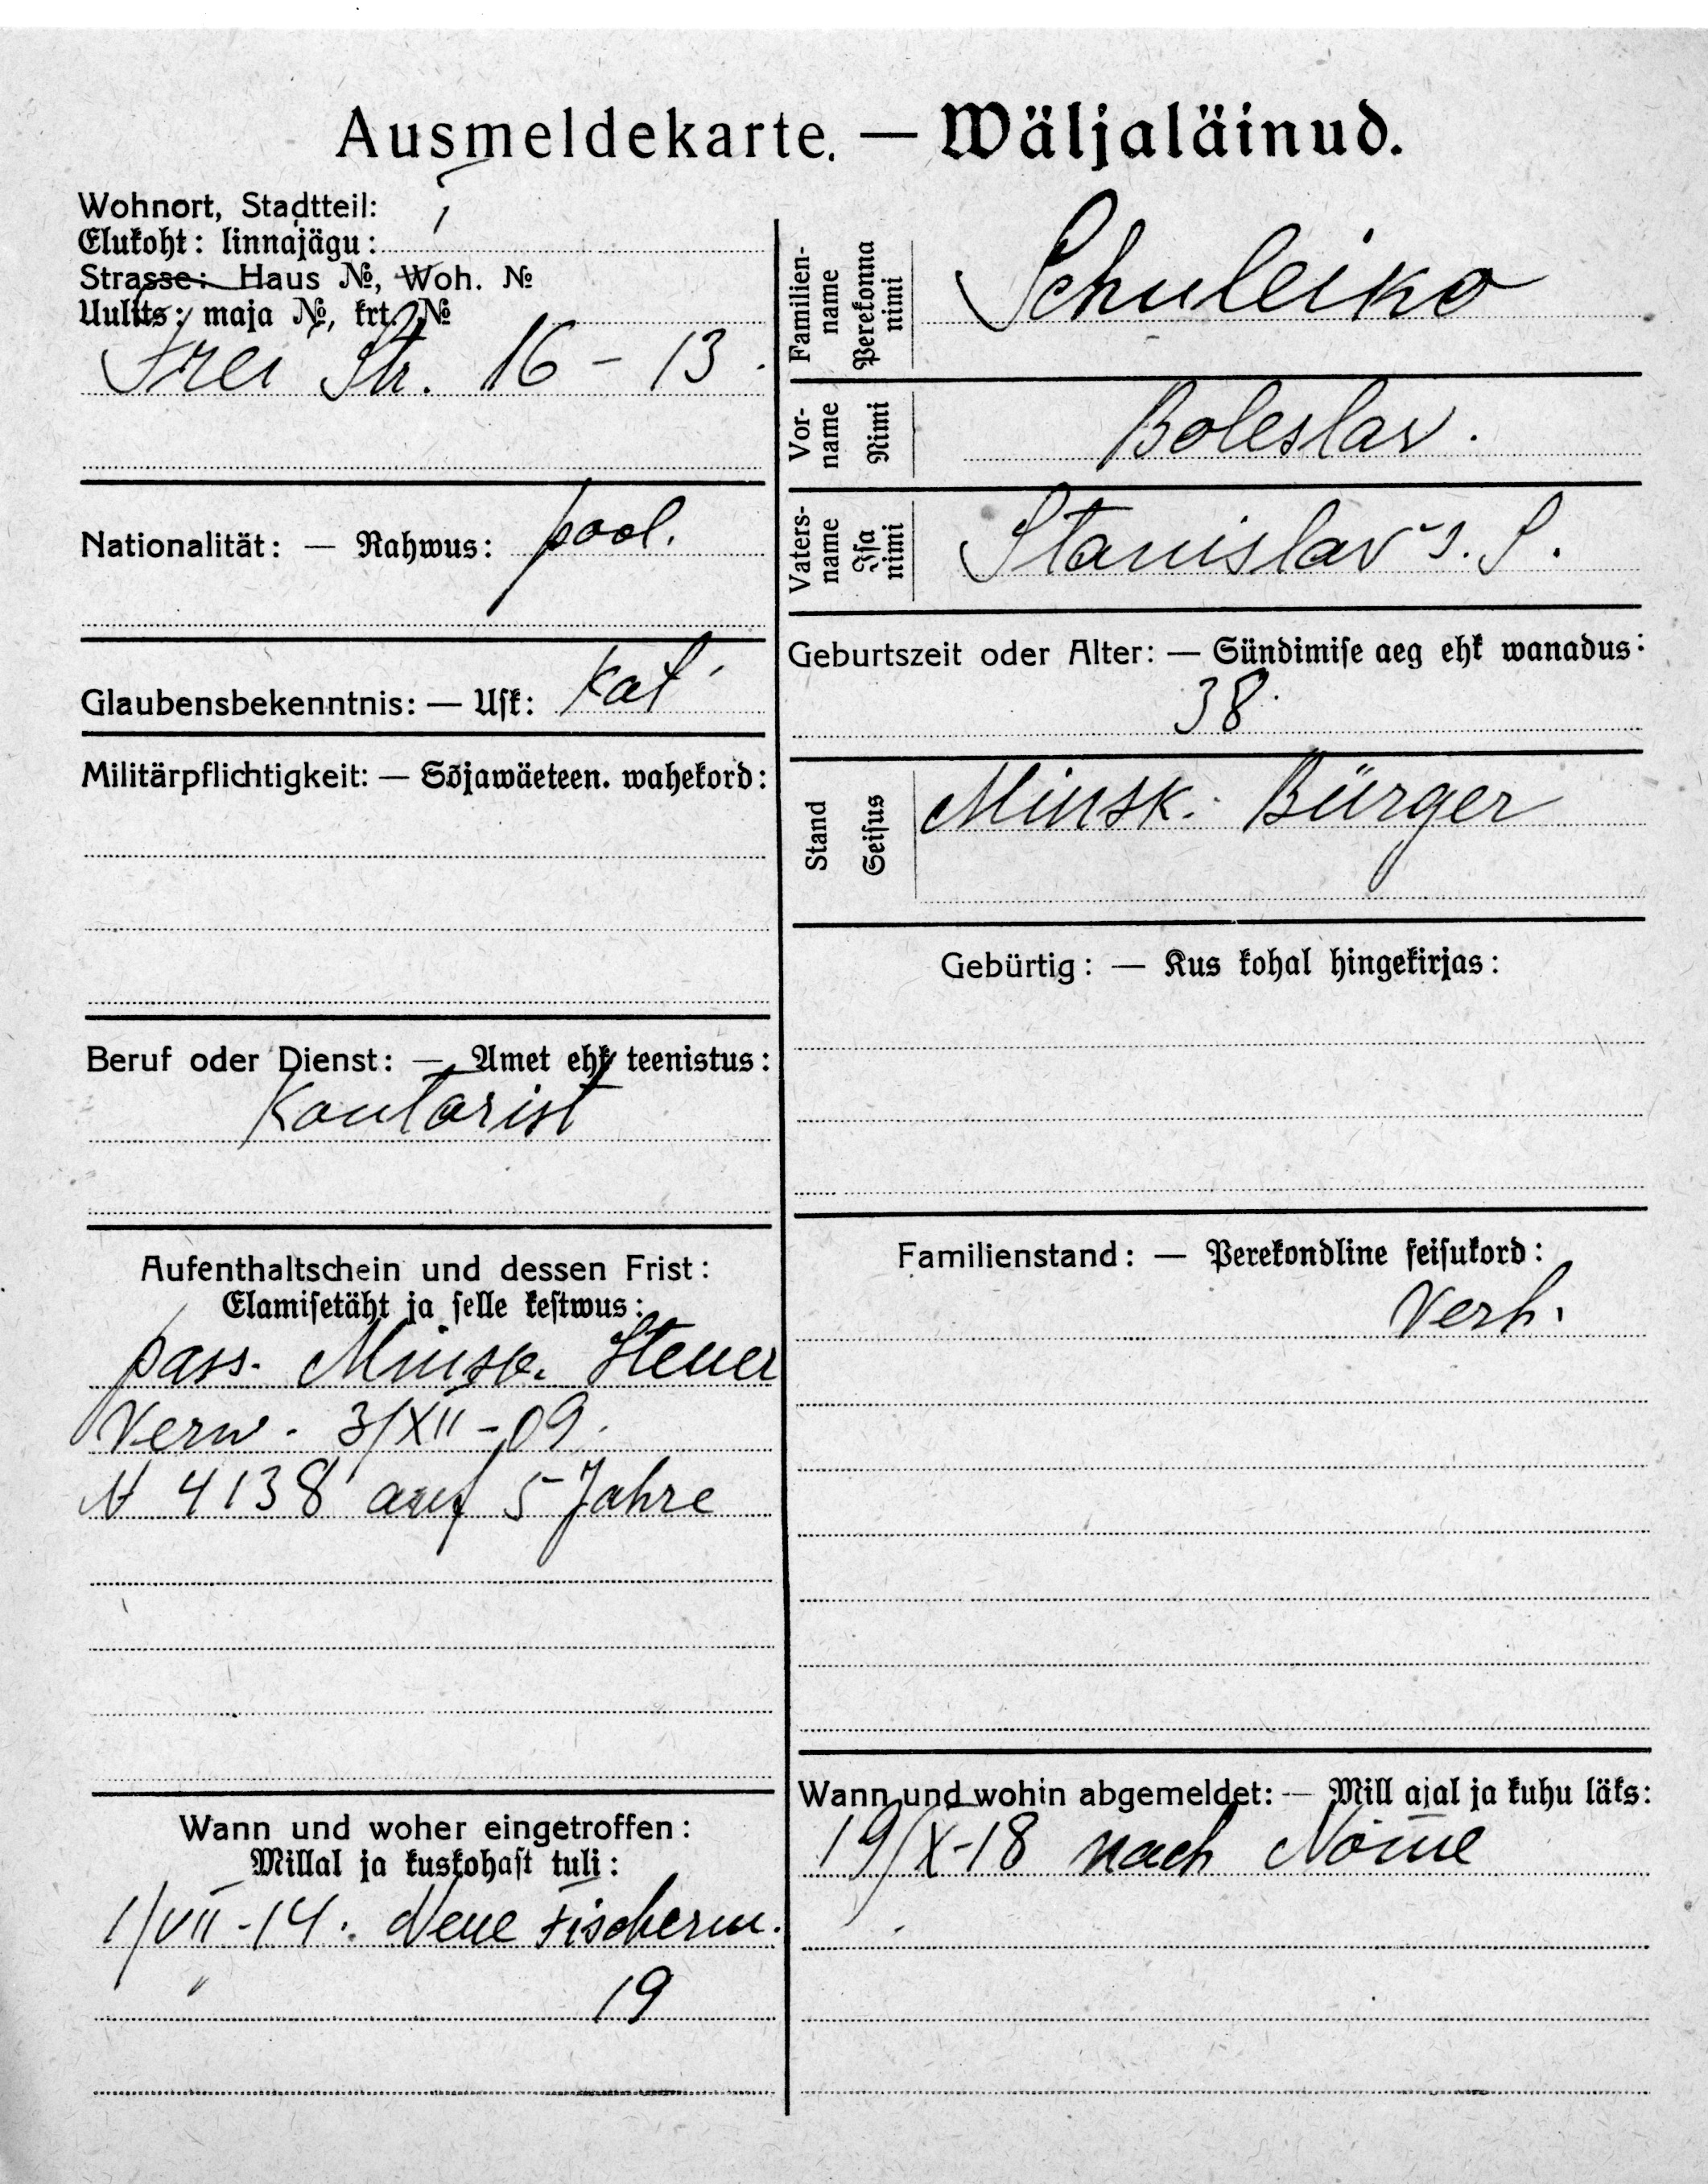 Ausmeldekarte. — Wäljaläinud.
Wohnort, Stadtteil:
Elukoht: linnajägu: I
Strasse: Haus №, Woh. №
Uulits: maja №, krt. №
Frei Str. 16 - 13.
Nationalität: — Rahwus: pool.
Glaubensbekenntnis: — Usk: Kat
Militärpflichtigkeit: — Sõjawäeteen. wahekord:
Beruf oder Dienst: — Amet ehk teenistus:
Kontorist
Aufenthaltschein und dessen Frist:
Elamisetäht ja selle kestwus:
pass. Minsk. Steuer
Verw. 3/XII-09.
N 4138 auf 5 Jahre
Wann und woher eingetroffen:
Millal ja kuskohast tuli:
1/VII-14. Neue Fischerm.
19
Familien-
name
Perekonna
nimi
Schuleiko
Vor-
name
Nimi
Boleslav.
Vaters-
name
Isa
nimi
Stanislav s. S.
Geburtszeit oder Alter: — Sündimise aeg ehk wanadus:
38.
Stand
Seisus
Minsk. Bürger
Gebürtig: — Kus kohal hingekirjas:
Familienstand: — Perekondline seisukord:
Verh.
Wann und wohin abgemeldet: — Mill ajal ja kuhu läks:
19/X-18 nach Nömme